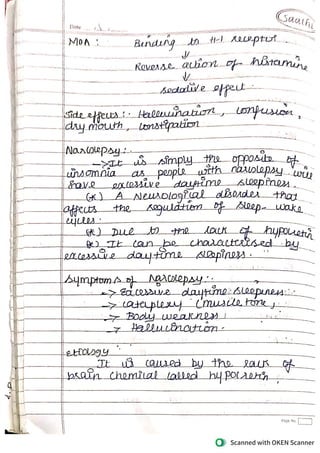 Saathi
Date
MOA : Binding to H-1 receptor
↓
Reverse action of histamine
↓
sedative effect
Side effects : Hallucination, confusion,
dry mouth, constipation
Narcolepsy :-
->It is simply the opposite of
insomnia as people with narcolepsy will
have excessive daytime sleepiness.
(*) A Neurological disorder that
affects the regulation of sleep-wake
cycles.
(*) Due to the lack of hypocretin
(*) It can be characterised by
excessive daytime sleepiness.
Symptoms of Narcolepsy :-
-> Excessive daytime sleepiness
-> Cataplexy (muscle tone)
-> Body weakness
-> Hallucination.
etiology
It is caused by the lack of
brain chemical called hypocretin
Page No.
Scanned with OKEN Scanner